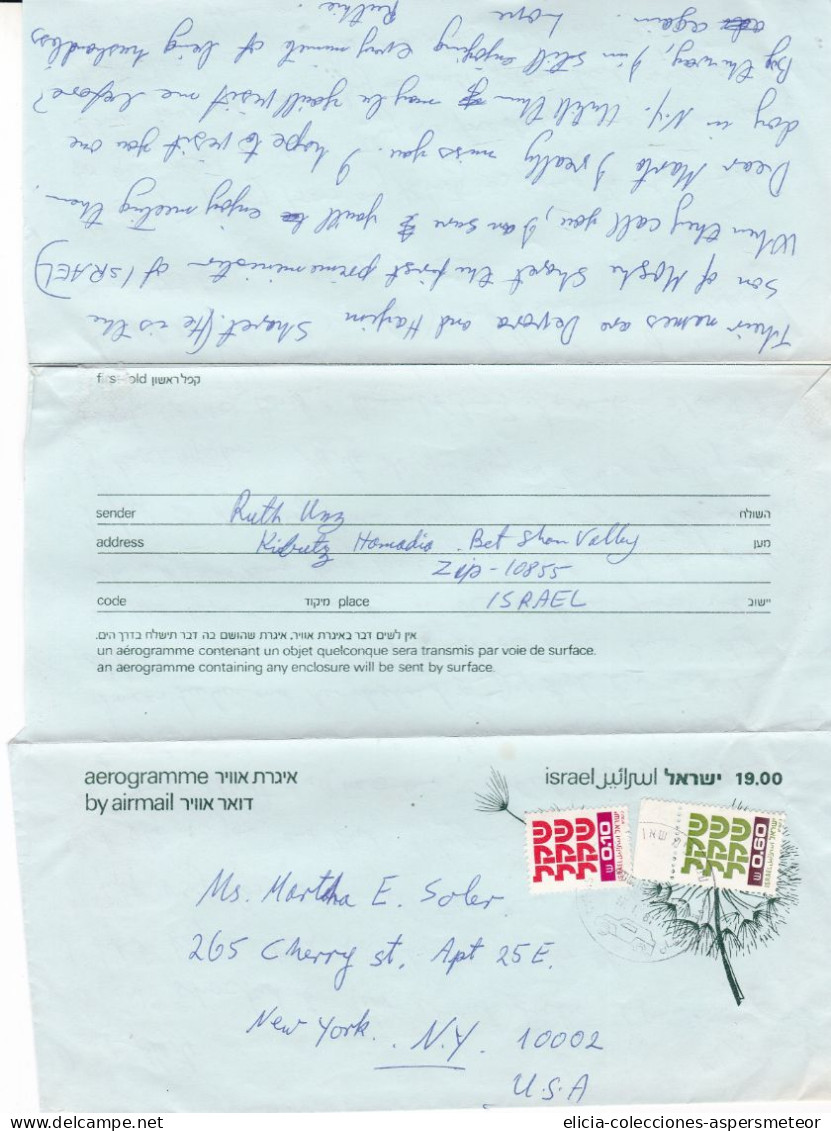 Their names are Devora and Hayim Sharet. (He is the
son of Moshe Sharet the first prime minister of ISRAEL)
When they call you, I am sure you'll enjoy meeting them.
Dear Marta I really miss you. I hope to visit you one
day in N.Y. Until then maybe you'll visit me before?
By the way, I'm still enjoying every minute of being husbandless
again.
Love
Ruthie.
first fold קפל ראשון
sender Ruth השולח
address Kibutz Hamadia Bet Shan Valley מען
Zip - 10855
code מיקוד place ISRAEL יישוב
אין לשים דבר באיגרת אוויר, איגרת שהושם בה דבר תישלח בדרך הים.
un aérogramme contenant un objet quelconque sera transmis par voie de surface.
an aerogramme containing any enclosure will be sent by surface.
aerogramme איגרת אוויר
by airmail דואר אוויר
israel اسرائيل ישראל 19.00
שקל שקל שקל 0.10
שקל שקל שקל 0.60
Ms. Martha E. Soler.
265 Cherry st. Apt 25E.
New York. N.Y. 10002
U.S.A
elicia-colecciones-aspersmeteor